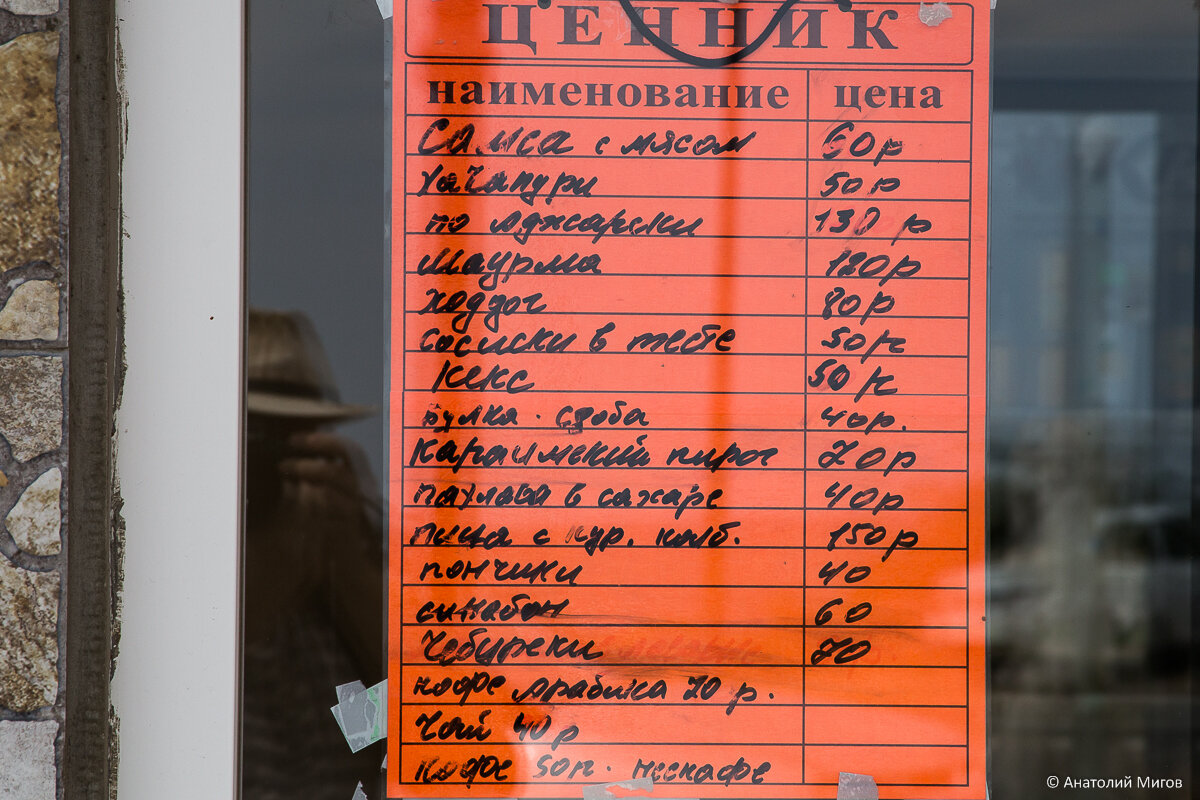 ЦЕННИК
наименование цена
Самса с мясом 60р
хачапури 50р
по аджарски 130 р
Шаурма 120р
Хотдог 80р
сосиски в тесте 50р
Кекс 50р
Булка сдоба 40р.
Караимский пирог 70р
пахлава в сахаре 40р
пицца с кур. колб. 150р
пончики 40
синабон 60
Чебуреки 70
кофе арабика 70 р.
Чай 40р
Кофе 50р. нескафе
© Анатолий Мигов